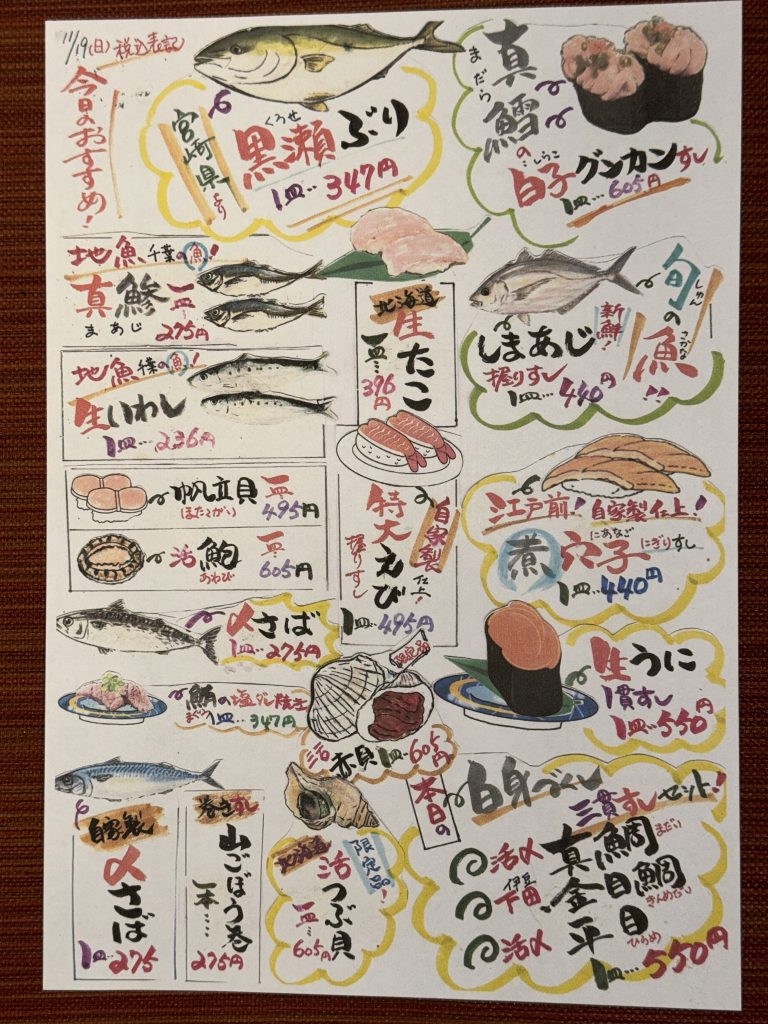 11/19(日) 税込表記
今日のおすすめ!
宮崎県より
くろせ
黒瀬ぶり
1皿…347円
まだら
真鱈の
しらこ
白子グンカンすし
1皿…605円
地魚 千葉の魚!
真鯵
まあじ
一皿…
275円
地魚 千葉の魚!
生いわし
1皿…236円
北海道
生たこ
一皿…
396円
しゅん
旬の
さかな
魚!!
新鮮!
しまあじ
握りすし
1皿…440円
帆立貝
ほたてがい
一皿…
495円
活 鮑
あわび
一皿…
605円
自家製仕上!
特大えび
握りすし
1皿…495円
江戸前! 自家製仕上!
にあなご
煮穴子にぎりすし
1皿…440円
〆さば
1皿…275円
鮪の塩タレ焼き
まぐろ
1皿…347円
限定品
活赤貝 1皿…605円
生うに
1貫すし
1皿…550円
自家製
〆さば
1皿…275
巻きすし
山ごぼう巻
一本…
275円
北海道
限定品!
活つぶ貝
一皿…
605円
本日の
白身づくし
三貫すしセット!
活〆 真鯛
まだい
伊豆
下田 金目鯛
きんめだい
活〆 平目
ひらめ
1皿…550円